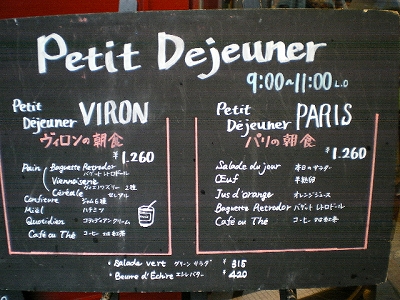 Petit Dejeuner
9:00~11:00 L.O
Petit
Déjeuner VIRON
ヴィロンの朝食
¥1.260
Pain Baguette Retrodor
バゲットレトロドール
Viennoiserie
ヴィエノワズリー 2種
Céréale セレアル
Confiture ジャム6種
Miël ハチミツ
Quotidien コティディアンクリーム
Café ou Thé コーヒー or 紅茶
Petit
Déjeuner PARIS
パリの朝食
¥1.260
Salade du jour 本日のサラダ
Œuf 半熟卵
Jus d'orange オレンジジュース
Baguette Retrodor バゲットレトロドール
Café ou Thé コーヒー or 紅茶
• Salade vert グリーンサラダ ¥315
• Beurre d'Echire エシレバター ¥420